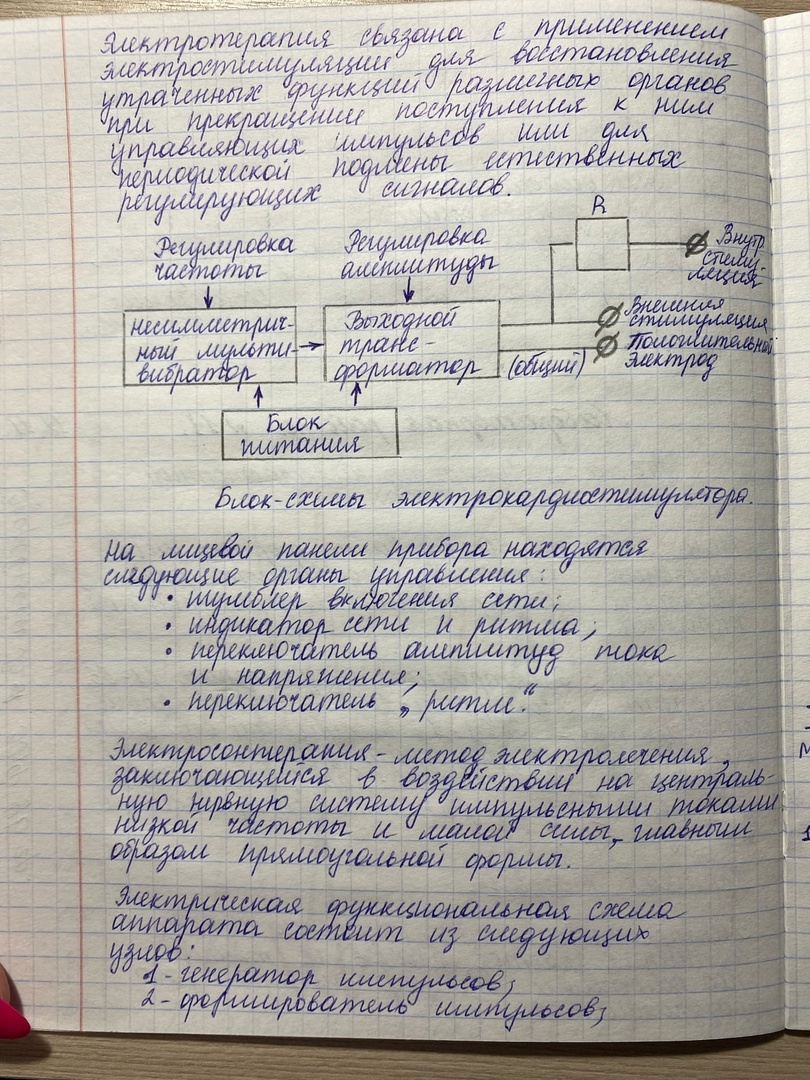 Электротерапия связана с применением
электростимуляции для восстановления
утраченных функций различных органов
при прекращении поступления к ним
управляющих импульсов или для
периодической подмены естественных
регулирующих сигналов.
R
Регулировка
частоты
Регулировка
амплитуды
Внутр.
стиму-
ляция
несимметрич-
ный мульти-
вибратор
Выходной
транс-
форматор
Внешняя
стимуляция
Положительный
электрод
(общий)
Блок
питания
Блок-схемы электрокардиостимулятора.
На лицевой панели прибора находятся
следующие органы управления:
• тумблер включения сети;
• индикатор сети и ритма;
• переключатель амплитуд тока
и напряжения;
• переключатель „ритм“.
Электросонтерапия - метод электролечения,
заключающейся в воздействии на централь-
ную нервную систему импульсными токами
низкой частоты и малой силы, главным
образом прямоугольной формы.
Электрическая функциональная схема
аппарата состоит из следующих
узлов:
1 - генератор импульсов;
2 - формирователь импульсов;